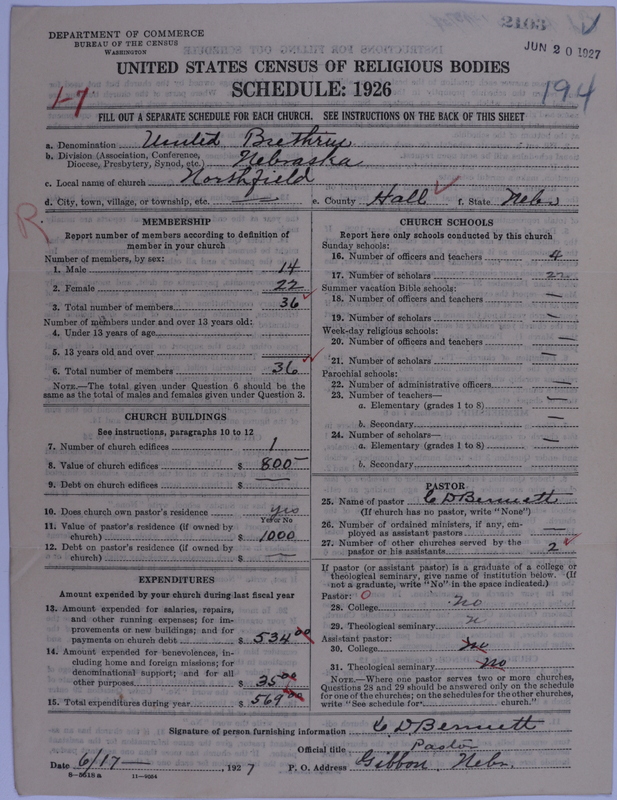 DEPARTMENT OF COMMERCE
BUREAU OF THE CENSUS
WASHINGTON
JUN 20 1927
UNITED STATES CENSUS OF RELIGIOUS BODIES
SCHEDULE: 1926
1-7
194
FILL OUT A SEPARATE SCHEDULE FOR EACH CHURCH. SEE INSTRUCTIONS ON THE BACK OF THIS SHEET
a. Denomination United Brethren
b. Division (Association, Conference, Diocese, Presbytery, Synod, etc.) Nebraska
c. Local name of church Northfield
d. City, town, village, or township, etc. — e. County Hall f. State Nebr
R
MEMBERSHIP
Report number of members according to definition of
member in your church
Number of members, by sex:
1. Male 14
2. Female 22
3. Total number of members 36
Number of members under and over 13 years old:
4. Under 13 years of age
5. 13 years old and over
6. Total number of members 36
NOTE.—The total given under Question 6 should be the
same as the total of males and females given under Question 3.
CHURCH BUILDINGS
See instructions, paragraphs 10 to 12
7. Number of church edifices 1
8. Value of church edifices $ 800—
9. Debt on church edifices $ —
10. Does church own pastor's residence yes
Yes or No
11. Value of pastor's residence (if owned by
church) $ 1000
12. Debt on pastor's residence (if owned by
church) $ —
EXPENDITURES
Amount expended by your church during last fiscal year
13. Amount expended for salaries, repairs,
and other running expenses; for im-
provements or new buildings; and for
payments on church debt $ 534 00
14. Amount expended for benevolences, in-
cluding home and foreign missions; for
denominational support; and for all
other purposes $ 35 00
15. Total expenditures during year $ 569 00
CHURCH SCHOOLS
Report here only schools conducted by this church
Sunday schools:
16. Number of officers and teachers 4
17. Number of scholars 22
Summer vacation Bible schools:
18. Number of officers and teachers —
19. Number of scholars —
Week-day religious schools:
20. Number of officers and teachers —
21. Number of scholars —
Parochial schools:
22. Number of administrative officers —
23. Number of teachers—
a. Elementary (grades 1 to 8) —
b. Secondary —
24. Number of scholars—
a. Elementary (grades 1 to 8) —
b. Secondary
PASTOR
25. Name of pastor C D Bennett
(If church has no pastor, write "None")
26. Number of ordained ministers, if any, em-
ployed as assistant pastors —
27. Number of other churches served by the
pastor or his assistants 2
If pastor (or assistant pastor) is a graduate of a college or
theological seminary, give name of institution below. (If
not a graduate, write "No" in the space indicated.)
Pastor: 0
28. College no
29. Theological seminary n
Assistant pastor:
30. College no
31. Theological seminary no
NOTE.—Where one pastor serves two or more churches,
Questions 28 and 29 should be answered only on the schedule
for one of the churches; on the schedules for the other churches,
write "See schedule for church."
Signature of person furnishing information C D Bennett
Official title Pastor
Date 6/17—, 1927 P. O. Address Gibbon, Nebr.
8—5618 a 11—9054